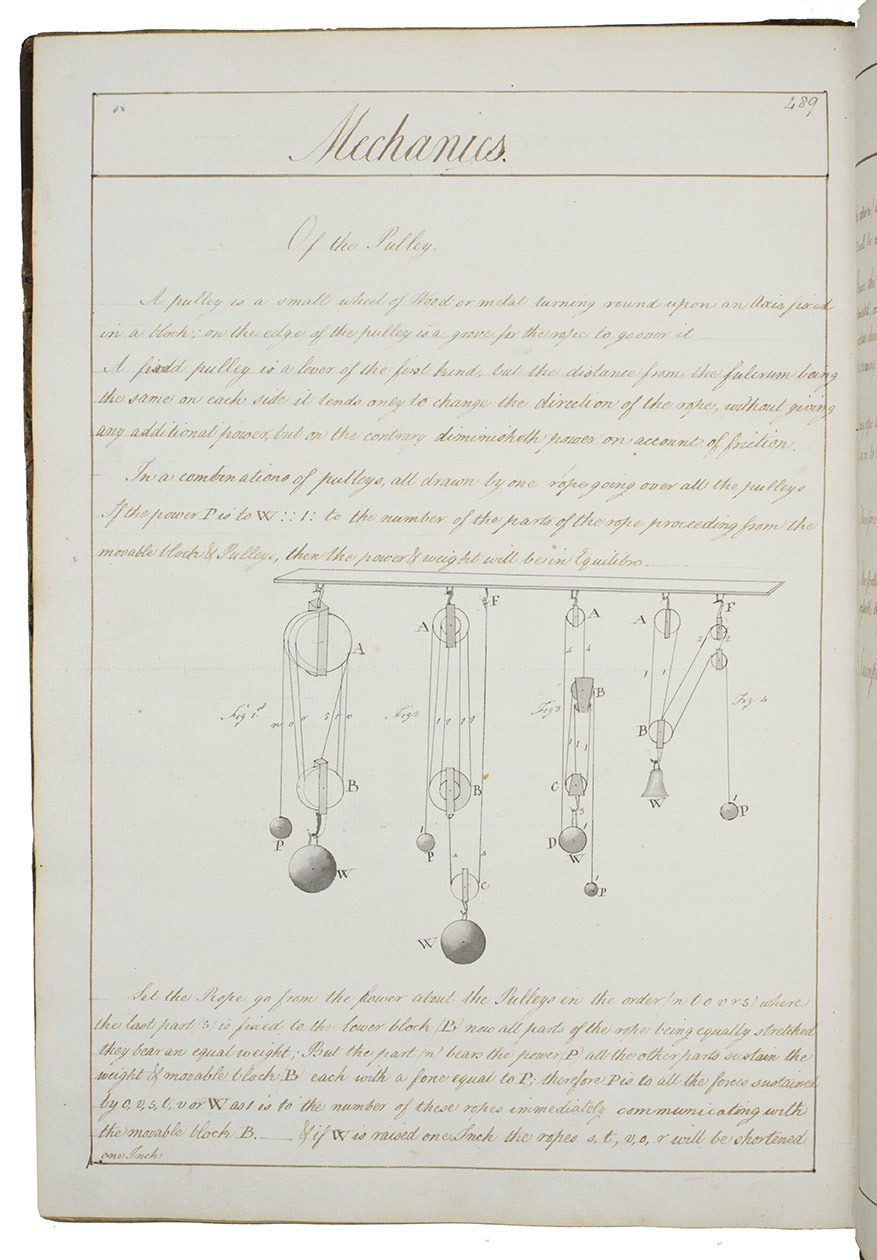 489
Mechanics.
Of the Pulley.
A pulley is a small wheel of Wood or metal turning round upon an Axis, fixed
in a block; on the edge of the pulley is a grove for the rope to go over it
A fixed pulley is a lever of the first kind, but the distance from the fulcrum being
the same on each side it tends only to change the direction of the rope, without giving
any additional power, but on the contrary diminisheth power on account of friction.
In a combinations of pulleys, all drawn by one rope going over all the pulleys
If the power P is to W :: 1 : to the number of the parts of the rope proceeding from the
movable block & Pulleys, then the power & weight will be in Equilibro.
F
A
A
A
F
A
2
2
4
4
B
Fig 1.st
n o r s t v
Fig 2
1 1 1 1
Fig 3
1 1 1
1 1
Fig. 4
B
B
B
C
W
1
P
1
P
P
W
4
4
D
W
C
P
W
Let the Rope go from the power about the Pulleys in the order (n t o v r s) where
the last part (s) is fixed to the lower block (B) now all parts of the rope being equally stretched
they bear an equal weight; But the part (n) bears the power (P) all the other parts sustain the
weight & movable block (B) each with a fone equal to P; therefore P is to all the forces sustained
by o, v, s, t, v or W as 1 is to the number of these ropes immediately communicating with
the movable block B. & if W is raised one Inch the ropes s, t, v, o, r will be shortened
one Inch